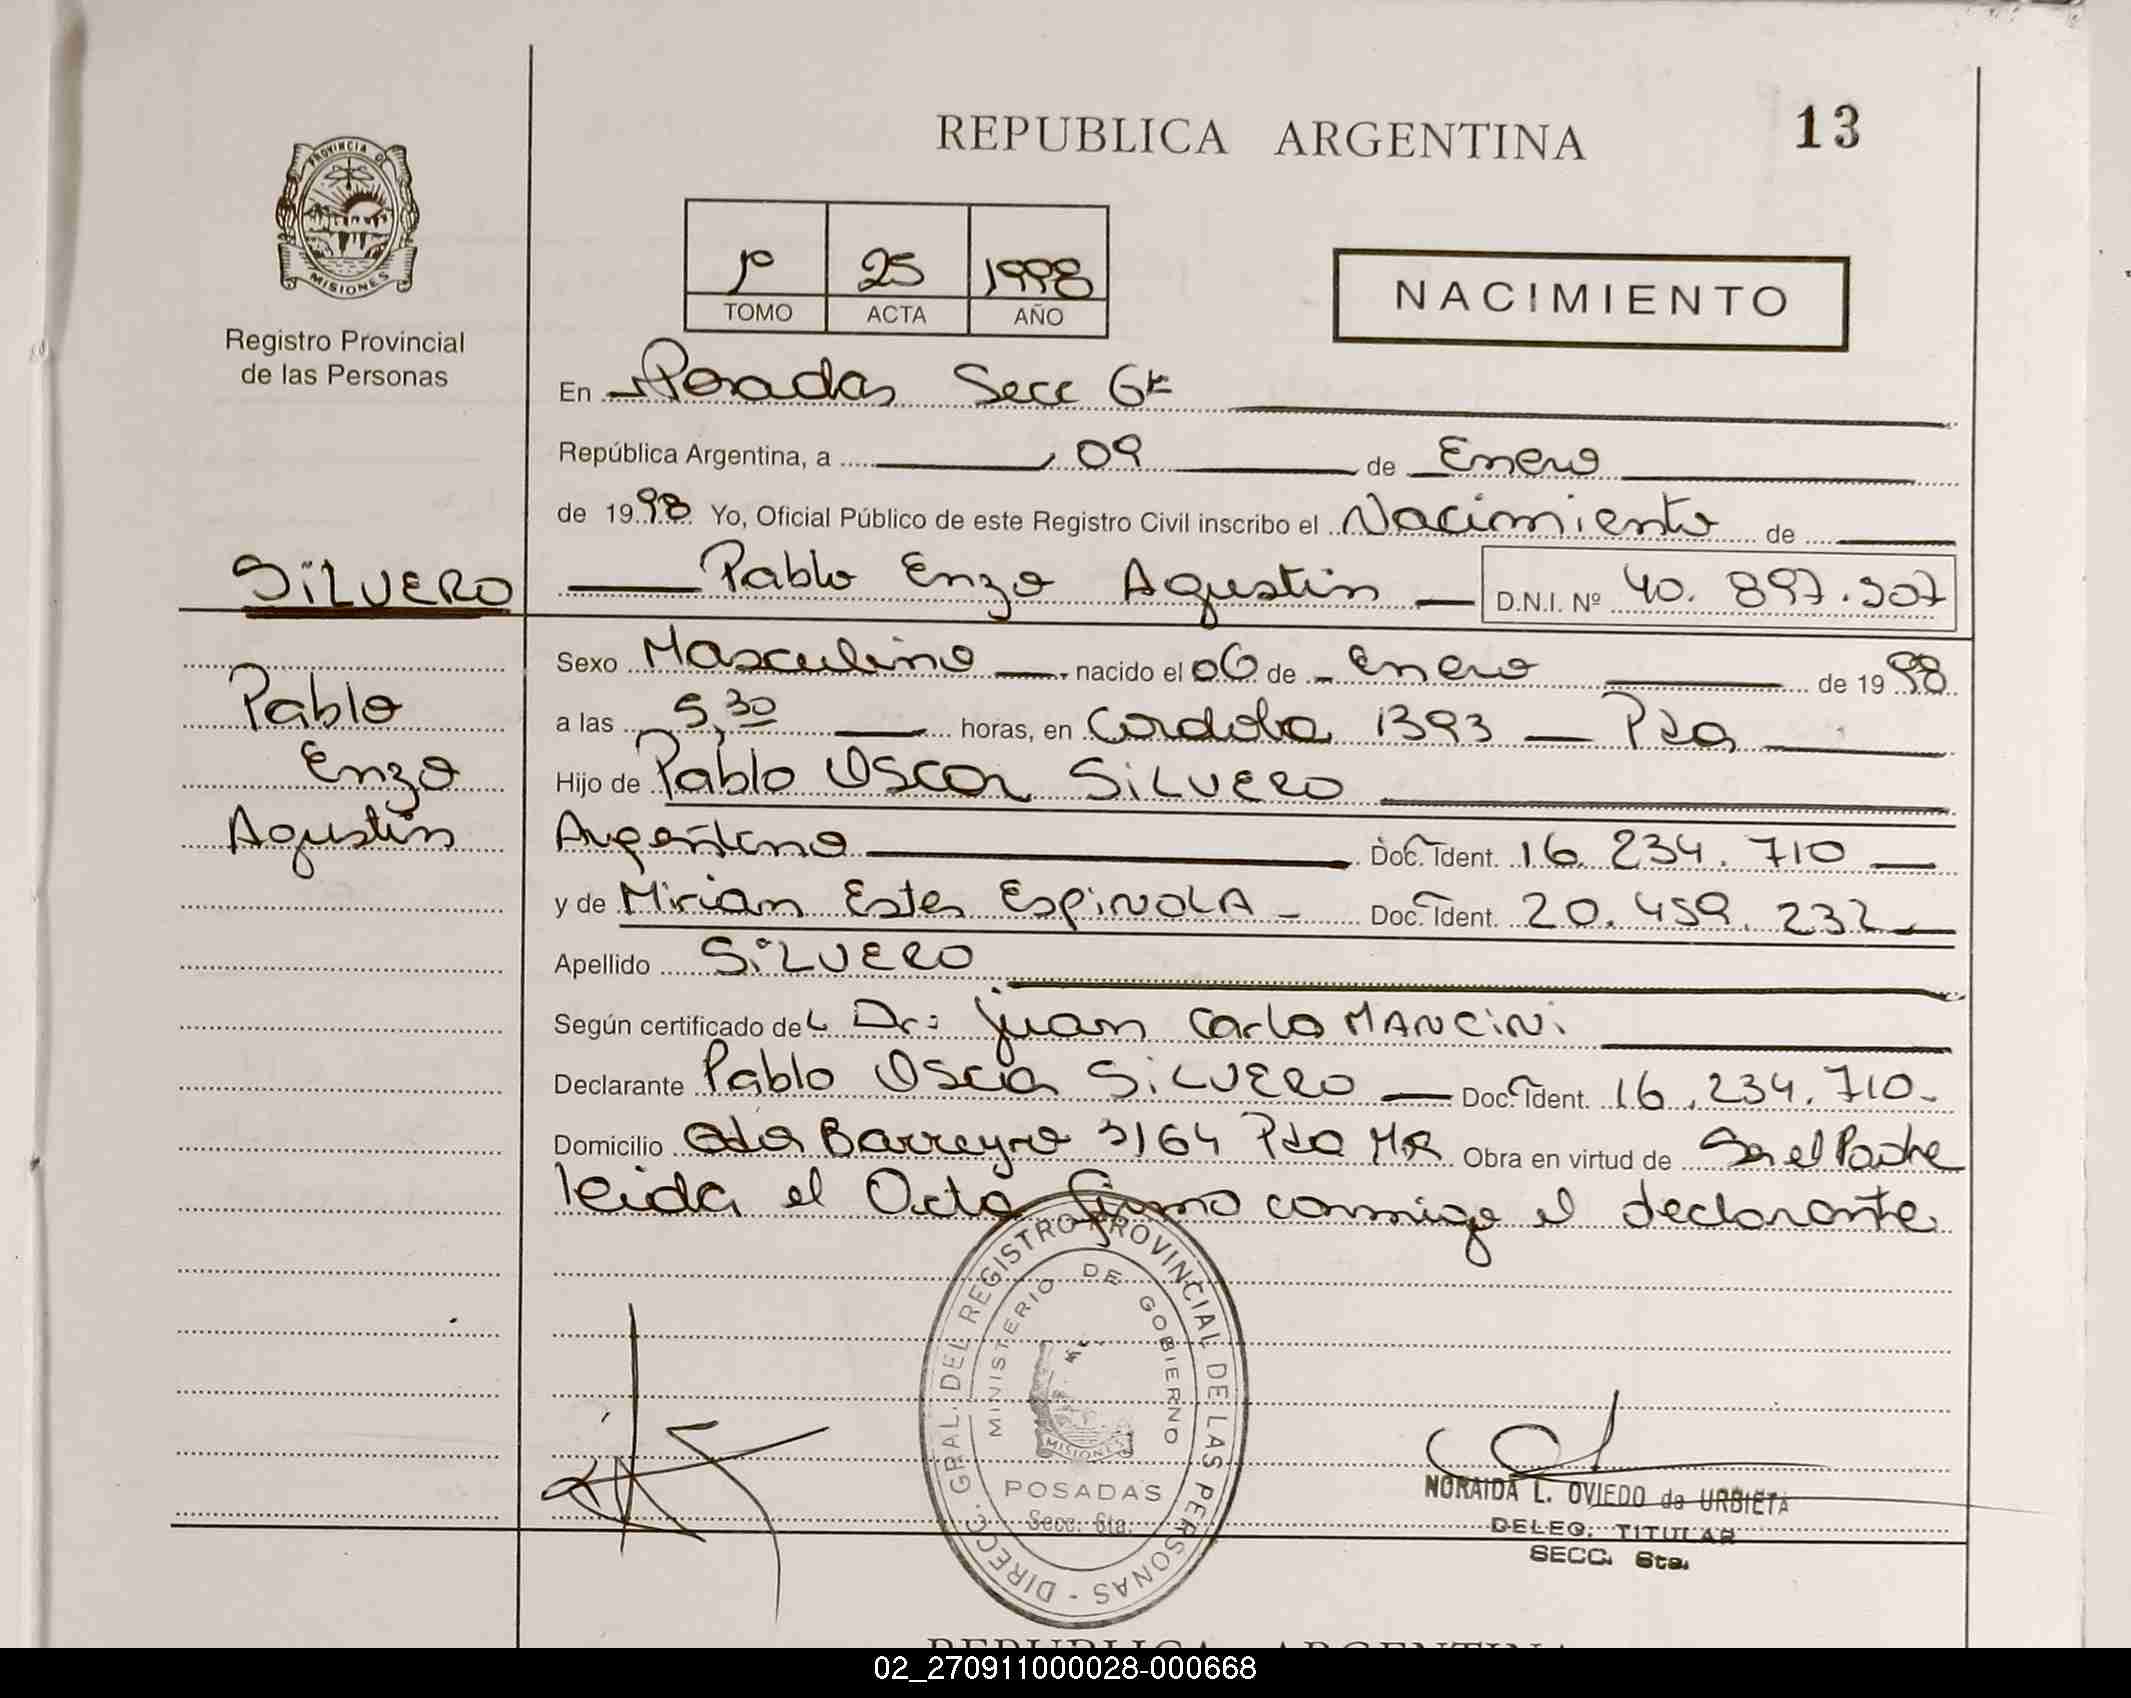 REPUBLICA ARGENTINA
13
PROVINCIA DE
MISIONES
Registro Provincial
de las Personas
1º 25 1998
TOMO ACTA AÑO
NACIMIENTO
En Posadas Secc 6ta
República Argentina, a 09 de Enero
de 1998 Yo, Oficial Público de este Registro Civil inscribo el Nacimiento de
SILVERO
Pablo Enzo Agustin D.N.I. Nº 40.897.507
Sexo Masculino nacido el 06 de Enero de 1998
Pablo
a las 5,30 horas, en Cordoba 1393 — Pdas
Enzo
Hijo de Pablo Oscar SILVERO
Agustin
Argentino Doc. Ident. 16.234.710
y de Mirian Ester ESPINOLA - Doc. Ident. 20.459.232
Apellido SILVERO
Según certificado del Dr: Juan Carlo MANCINI
Declarante Pablo Oscar SILVERO — Doc. Ident. 16.234.710-
Domicilio Barreyro 3164 Obra en virtud de Ser el Padre
leida el Acta firma conmigo el declarante
DIRECC. GRAL. DEL REGISTRO PROVINCIAL DE LAS PERSONAS -
MINISTERIO DE GOBIERNO
MISIONES
POSADAS
Secc. 6ta.
NORAIDA L. OVIEDO de URBIETA
DELEG. TITULAR
SECC. 6ta.
REPUBLICA ARGENTINA
02_270911000028-000668